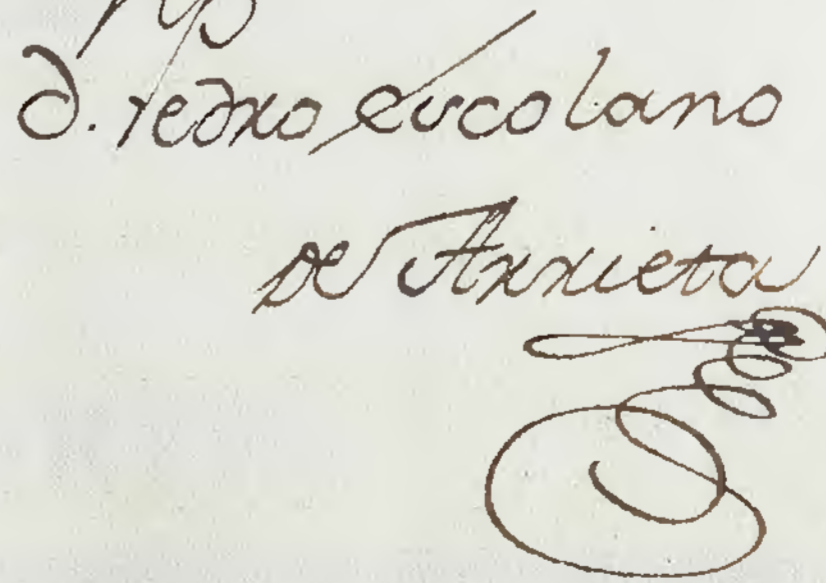 D. Pedro Escolano
de Arrieta